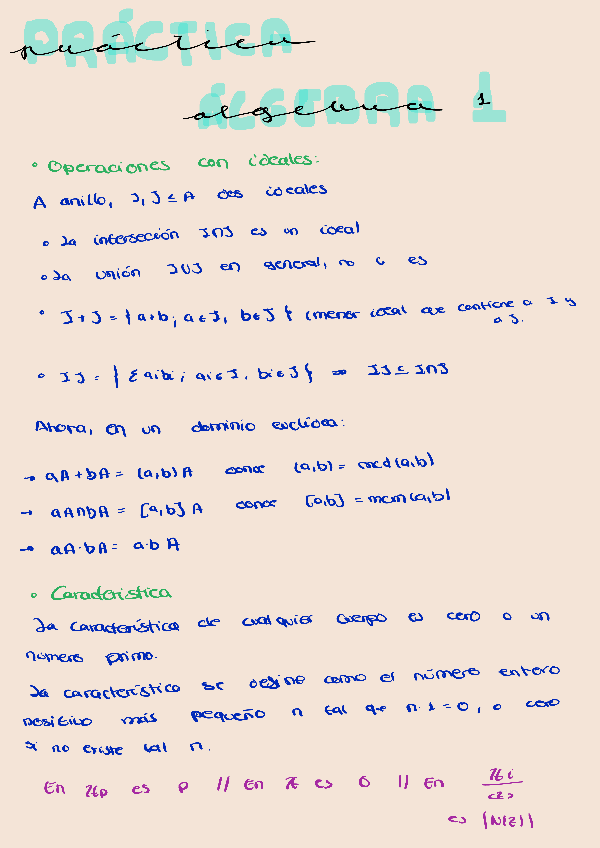 práctica
PRÁCTICA
algebra 1
ÁLGEBRA 1
• Operaciones con ideales:
A anillo, I, J ≤ A dos ideales
• La interseción I∩J es un ideal
• La unión I∪J en general, no lo es
• I+J = {a+b; a∈I, b∈J} (menor ideal que contiene a I y
a J.
• IJ = {Σaibi; ai∈I, bi∈J} ⇒ IJ ⊆ I∩J
Ahora, en un dominio euclídeo:
→ aA+bA = (a,b)A donde (a,b) = mcd(a,b)
→ aA∩bA = [a,b]A donde [a,b] = mcm(a,b)
→ aA·bA = a·b A
• Característica
La característica de cualquier cuerpo es cero o un
número primo.
La característica se define como el número entero
positivo más pequeño n tal que n·1=0, o cero
si no existe tal n.
En ℤp es p // En ℤ es 0 // En ℤi
<z>
es |N(z)|